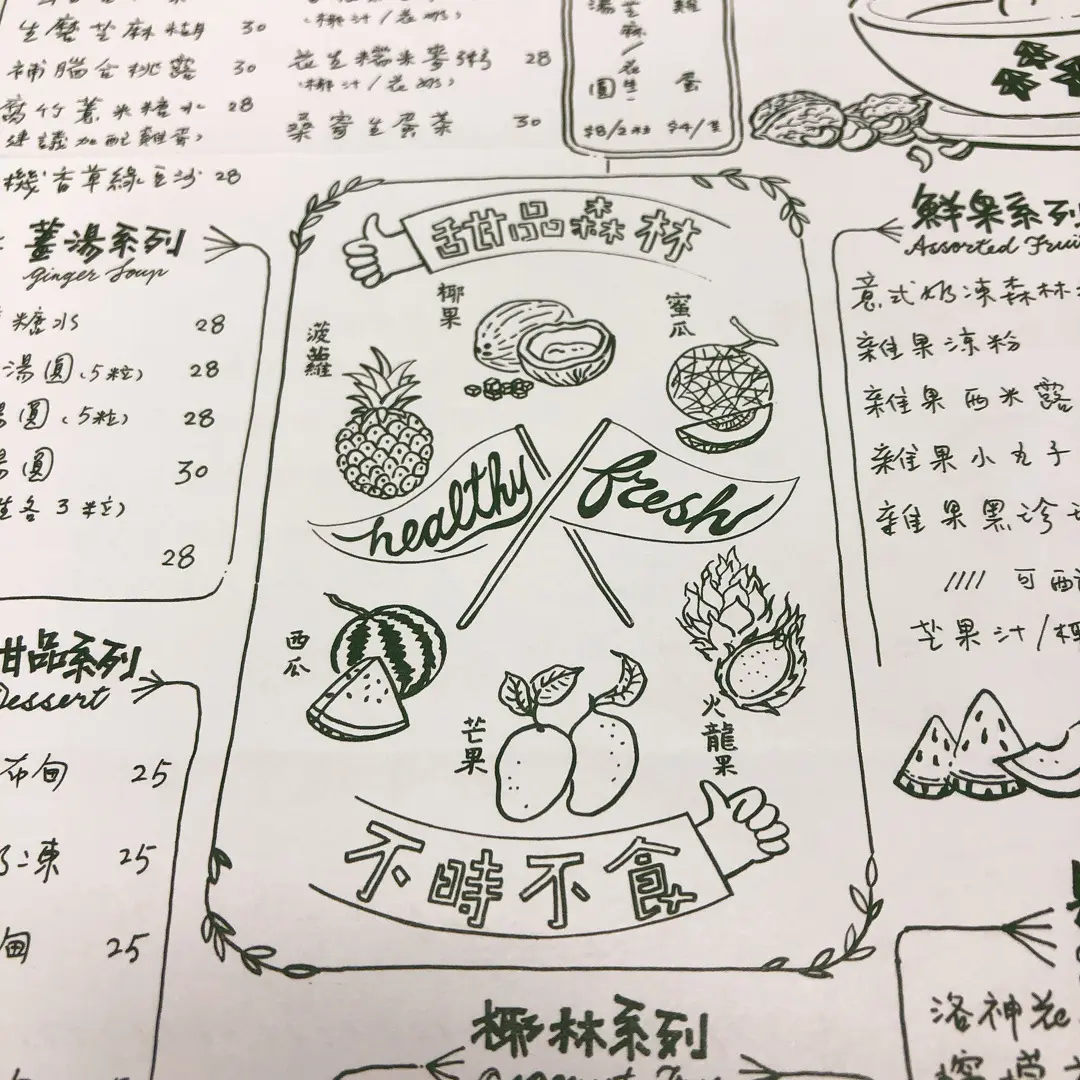 生磨芝麻糊 30
補腦合桃露 30
腐竹薏米糖水 28
建議加配雞蛋)
機香草綠豆沙 28
(椰汁/花奶)
花生糯米麥粥 28
(椰汁/花奶)
桑寄生蛋茶 30
湯圓
芝麻/花生
雞蛋
$8/2粒 $4/隻
薑湯系列
Ginger Soup
糖水 28
湯圓(5粒) 28
圓(5粒) 28
湯圓 30
各3粒)
28
甜品系列
Dessert
布甸 25
凍 25
甸 25
甜品森林
椰果
菠蘿
蜜瓜
healthy
fresh
西瓜
芒果
火龍果
不時不食
椰林系列
鮮果系列
Assorted Frui
意式奶凍森林
雜果涼粉
雜果西米露
雜果小丸子
雜果黑珍
//// 可配
芒果汁/椰
洛神花